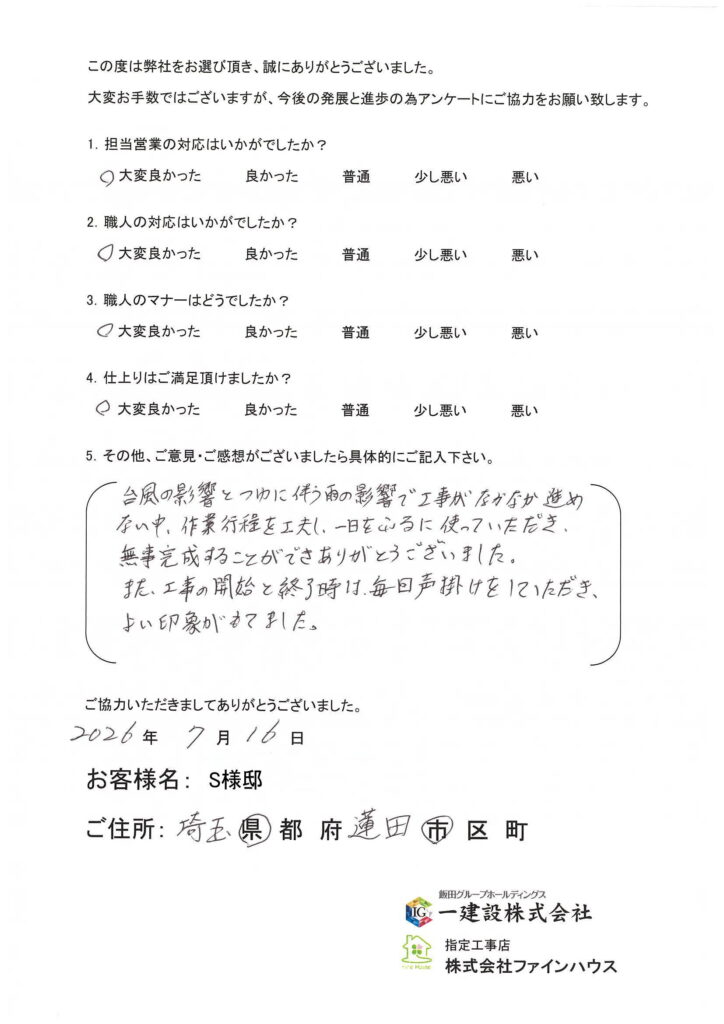 この度は弊社をお選び頂き、誠にありがとうございました。
大変お手数ではございますが、今後の発展と進歩の為アンケートにご協力をお願い致します。
1. 担当営業の対応はいかがでしたか？
○大変良かった 良かった 普通 少し悪い 悪い
2. 職人の対応はいかがでしたか？
○大変良かった 良かった 普通 少し悪い 悪い
3. 職人のマナーはどうでしたか？
○大変良かった 良かった 普通 少し悪い 悪い
4. 仕上りはご満足頂けましたか？
○大変良かった 良かった 普通 少し悪い 悪い
5. その他、ご意見・ご感想がございましたら具体的にご記入下さい。
台風の影響とつゆに伴う雨の影響で工事がなかなか進め
ない中、作業行程を工夫し、一日をふるに使っていただき、
無事完成することができありがとうございました。
また、工事の開始と終了時は、毎回声掛けをしていただき、
よい印象がもてました。
ご協力いただきましてありがとうございました。
2026 年 7 月 16 日
お客様名： S様邸
ご住所：埼玉 県 都 府 蓮田 市 区 町
飯田グループホールディングス
IG 一建設株式会社
指定工事店
Fine House 株式会社ファインハウス